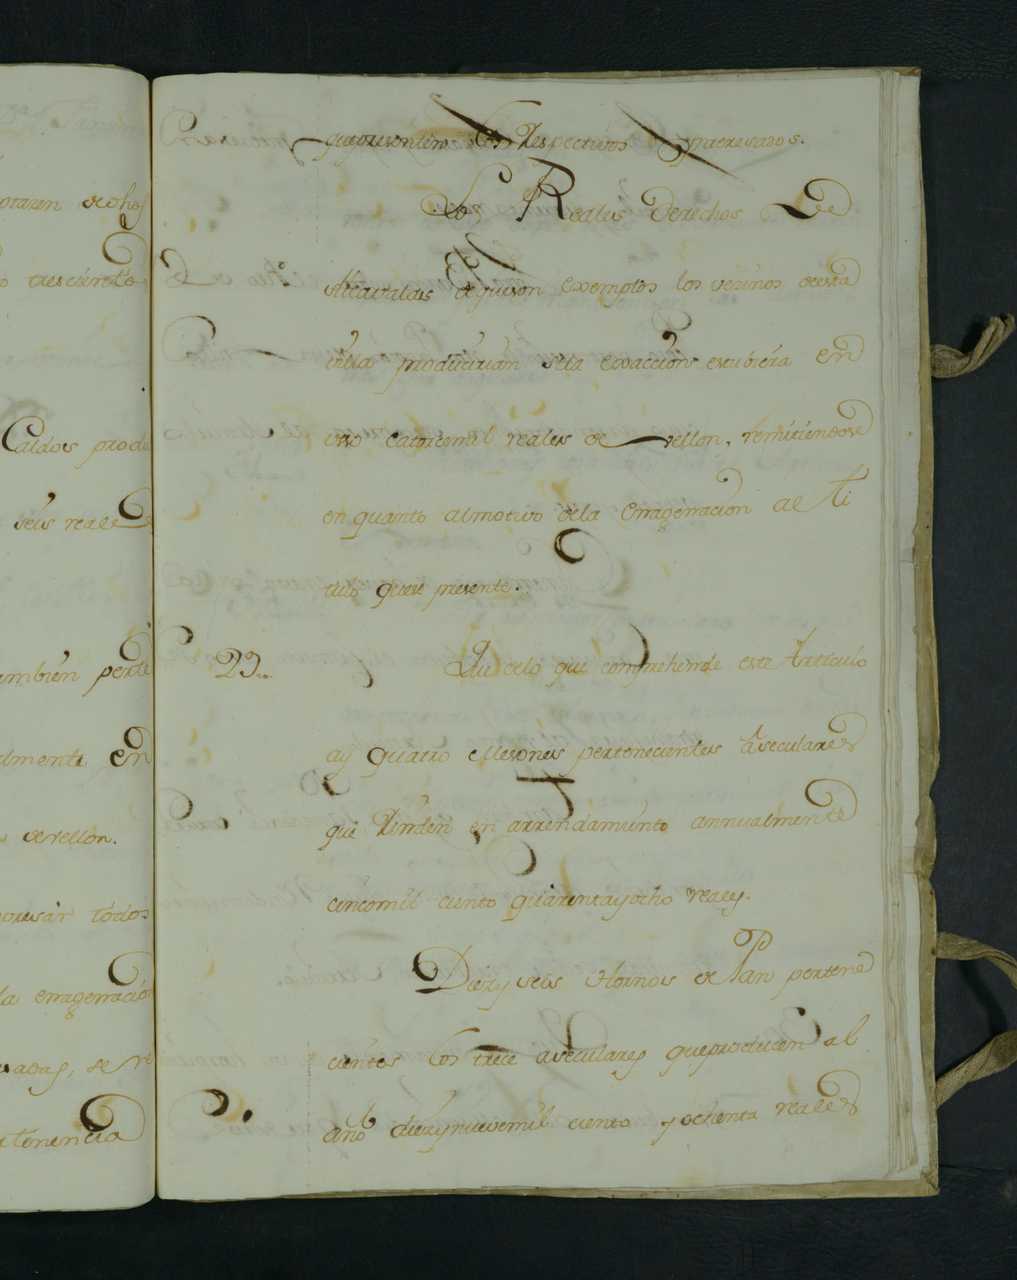 otaren dho
o trescientos
Caldos produ
seis reales
ambien perte
almente en
de vellon.
presar todos
la enagenacio
adas, de
rtenencia
que presenten los Respectivos Ynteresados.
Los Reales Derechos de
Alcavalas de que son exemptos los vezinos de esta
villa produzirian si la exaccion estubiera en
uso catorcemil reales de vellon, remitiendose
en quanto al motivo de la enagenacion al Ti
tulo que se presente.
29. Que de lo que comprehende este Articulo
ay quatro Mesones pertenecientes a seculares
que Rinden en arrendamiento annualmente
cincomil ciento quarenta y ocho reales.
Diez y seis Hornos de Pan pertene
cientes los trece a seculares que producen al
año diez y nuevemil ciento y ochenta reales